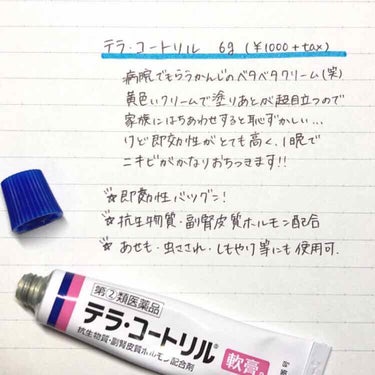 テラ・コートリル 6g (¥1000+tax)
病院でもらうかんじのベタベタクリーム(笑)
黄色いクリームで塗りあとが超目立つので
家族にはちあわせすると恥ずかしい…
けど即効性がとても高く、1眠で
ニキビがかなりおちつきます!!
☆即効性バツグン!
☆抗生物質・副腎皮質ホルモン配合
☆あせも・虫さされ・しもやけ等にも使用可.
指定②類医薬品
テラ・コートリル®
軟膏
抗生物質・副腎皮質ホルモン配合剤